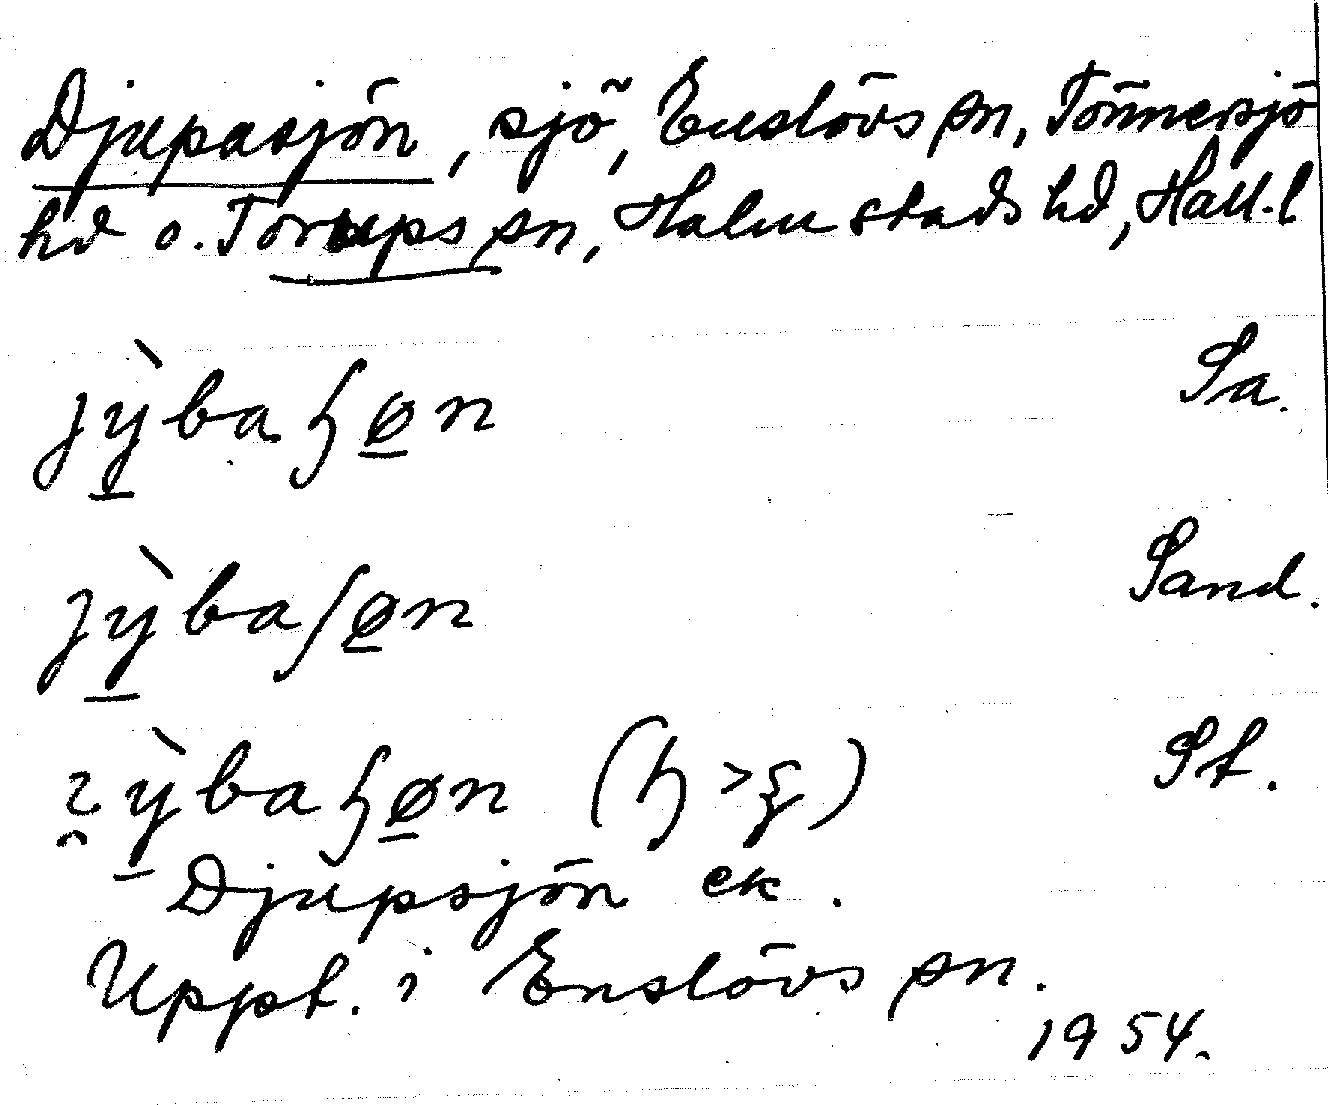 Djupasjön, sjö, Enslövs sn, Tönnersjö
hd o. Torups sn, Halmstads hd, Hall. l
jỳ̲baɧø̲n Sa.
jỳ̲baʃø̲n Sand.
ỳ̲baɧø̲n St.
Djupsjön ek.
Uppt. i Enslövs sn.
1954.